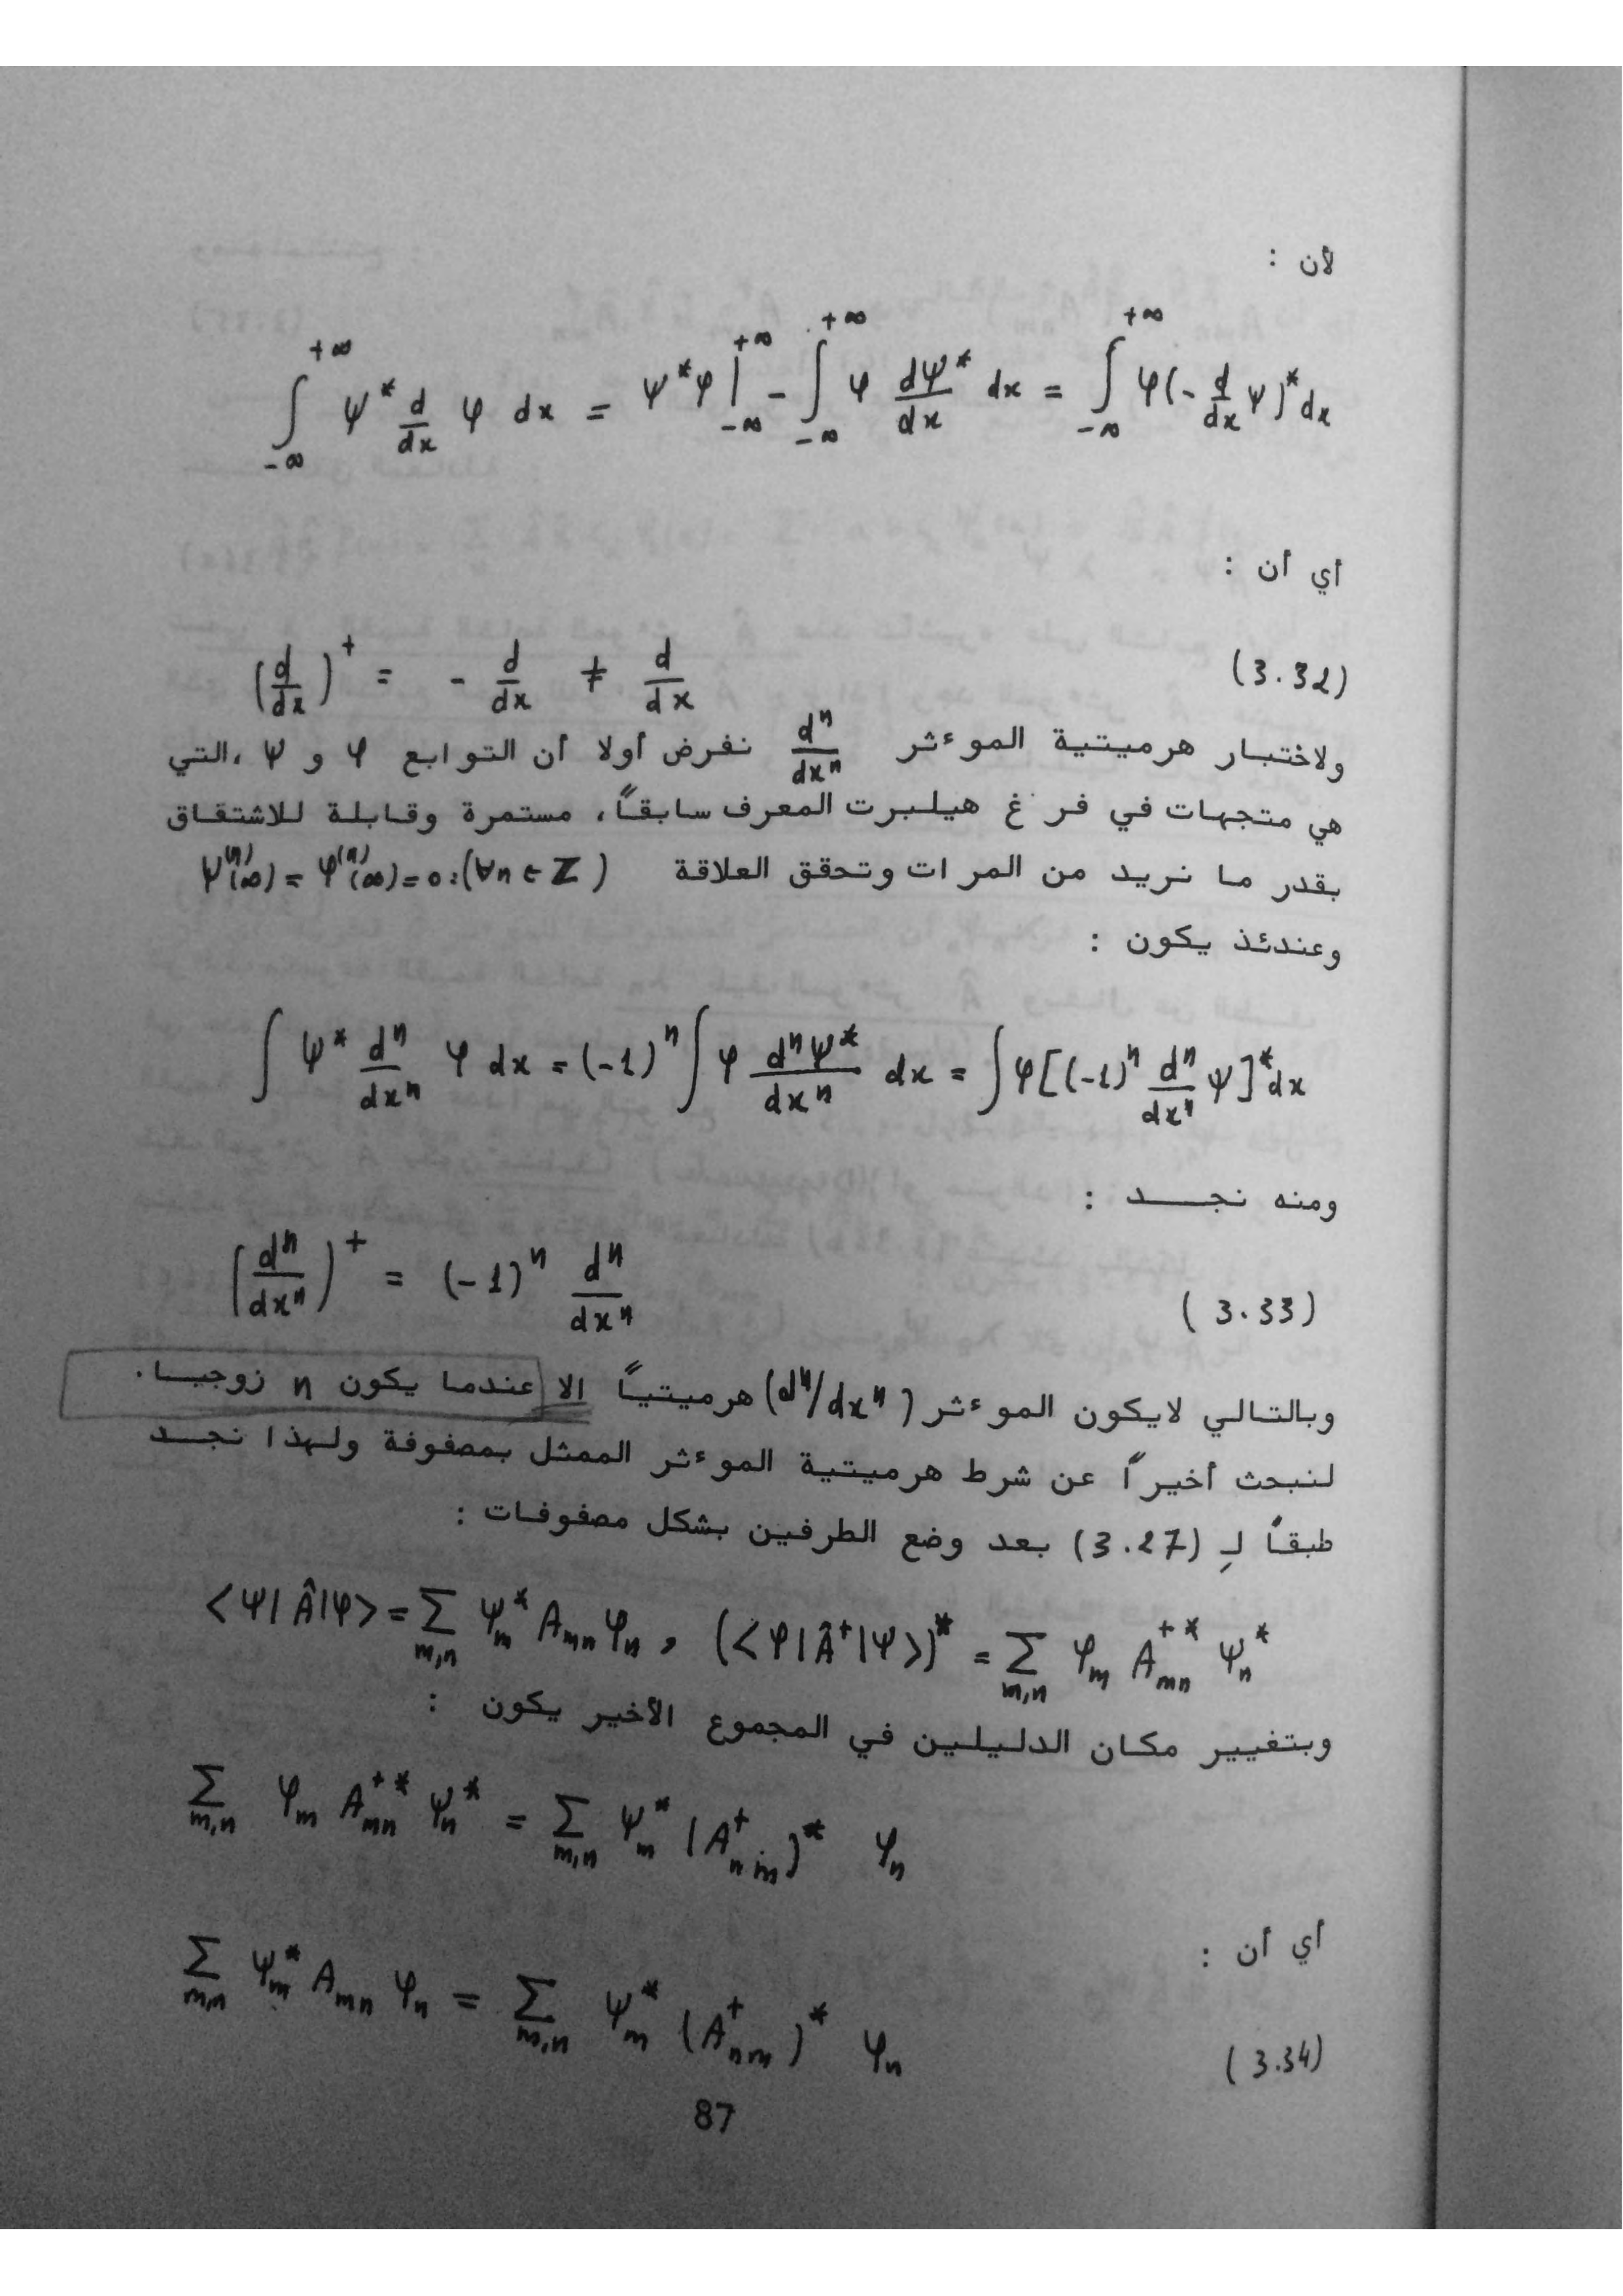 لأن :
∫_{-∞}^{+∞} ψ* d/dx φ dx = ψ*φ |_{-∞}^{+∞} - ∫_{-∞}^{+∞} φ dψ*/dx dx = ∫_{-∞}^{+∞} φ(- d/dx ψ)* dx
أي أن :
(d/dx)⁺ = - d/dx ≠ d/dx (3.32)
ولاختبار هرميتية الموءثر dⁿ/dxⁿ نفرض أولا أن التوابع φ و ψ ،التي
هي متجهات في فرغ هيلبرت المعرف سابقاً، مستمرة وقابلة للاشتقاق
بقدر ما نريد من المرات وتحقق العلاقة ψ⁽ⁿ⁾(∞) = φ⁽ⁿ⁾(∞) = 0 :(∀n ∈ Z)
وعندئذ يكون :
∫ ψ* dⁿ/dxⁿ φ dx = (-1)ⁿ ∫ φ dⁿψ*/dxⁿ dx = ∫ φ[(-1)ⁿ dⁿ/dxⁿ ψ]* dx
ومنه نجـــد :
(dⁿ/dxⁿ)⁺ = (-1)ⁿ dⁿ/dxⁿ (3.33)
وبالتالي لايكون الموءثر (dⁿ/dxⁿ) هرميتياً الا عندما يكون n زوجيا.
لنبحث أخيراً عن شرط هرميتية الموءثر الممثل بمصفوفة ولهذا نجد
طبقاً لـِ (3.27) بعد وضع الطرفين بشكل مصفوفات :
<ψ|Â|φ> = Σ_{m,n} ψ*_m A_{mn} φ_n , (<φ|Â⁺|ψ>)* = Σ_{m,n} φ_m A⁺*_{mn} ψ*_n
وبتغيير مكان الدليلين في المجموع الأخير يكون :
Σ_{m,n} φ_m A⁺*_{mn} ψ*_n = Σ_{m,n} ψ*_m (A⁺_{nm})* φ_n
أي أن :
Σ_{m,n} ψ*_m A_{mn} φ_n = Σ_{m,n} ψ*_m (A⁺_{nm})* φ_n (3.34)
87